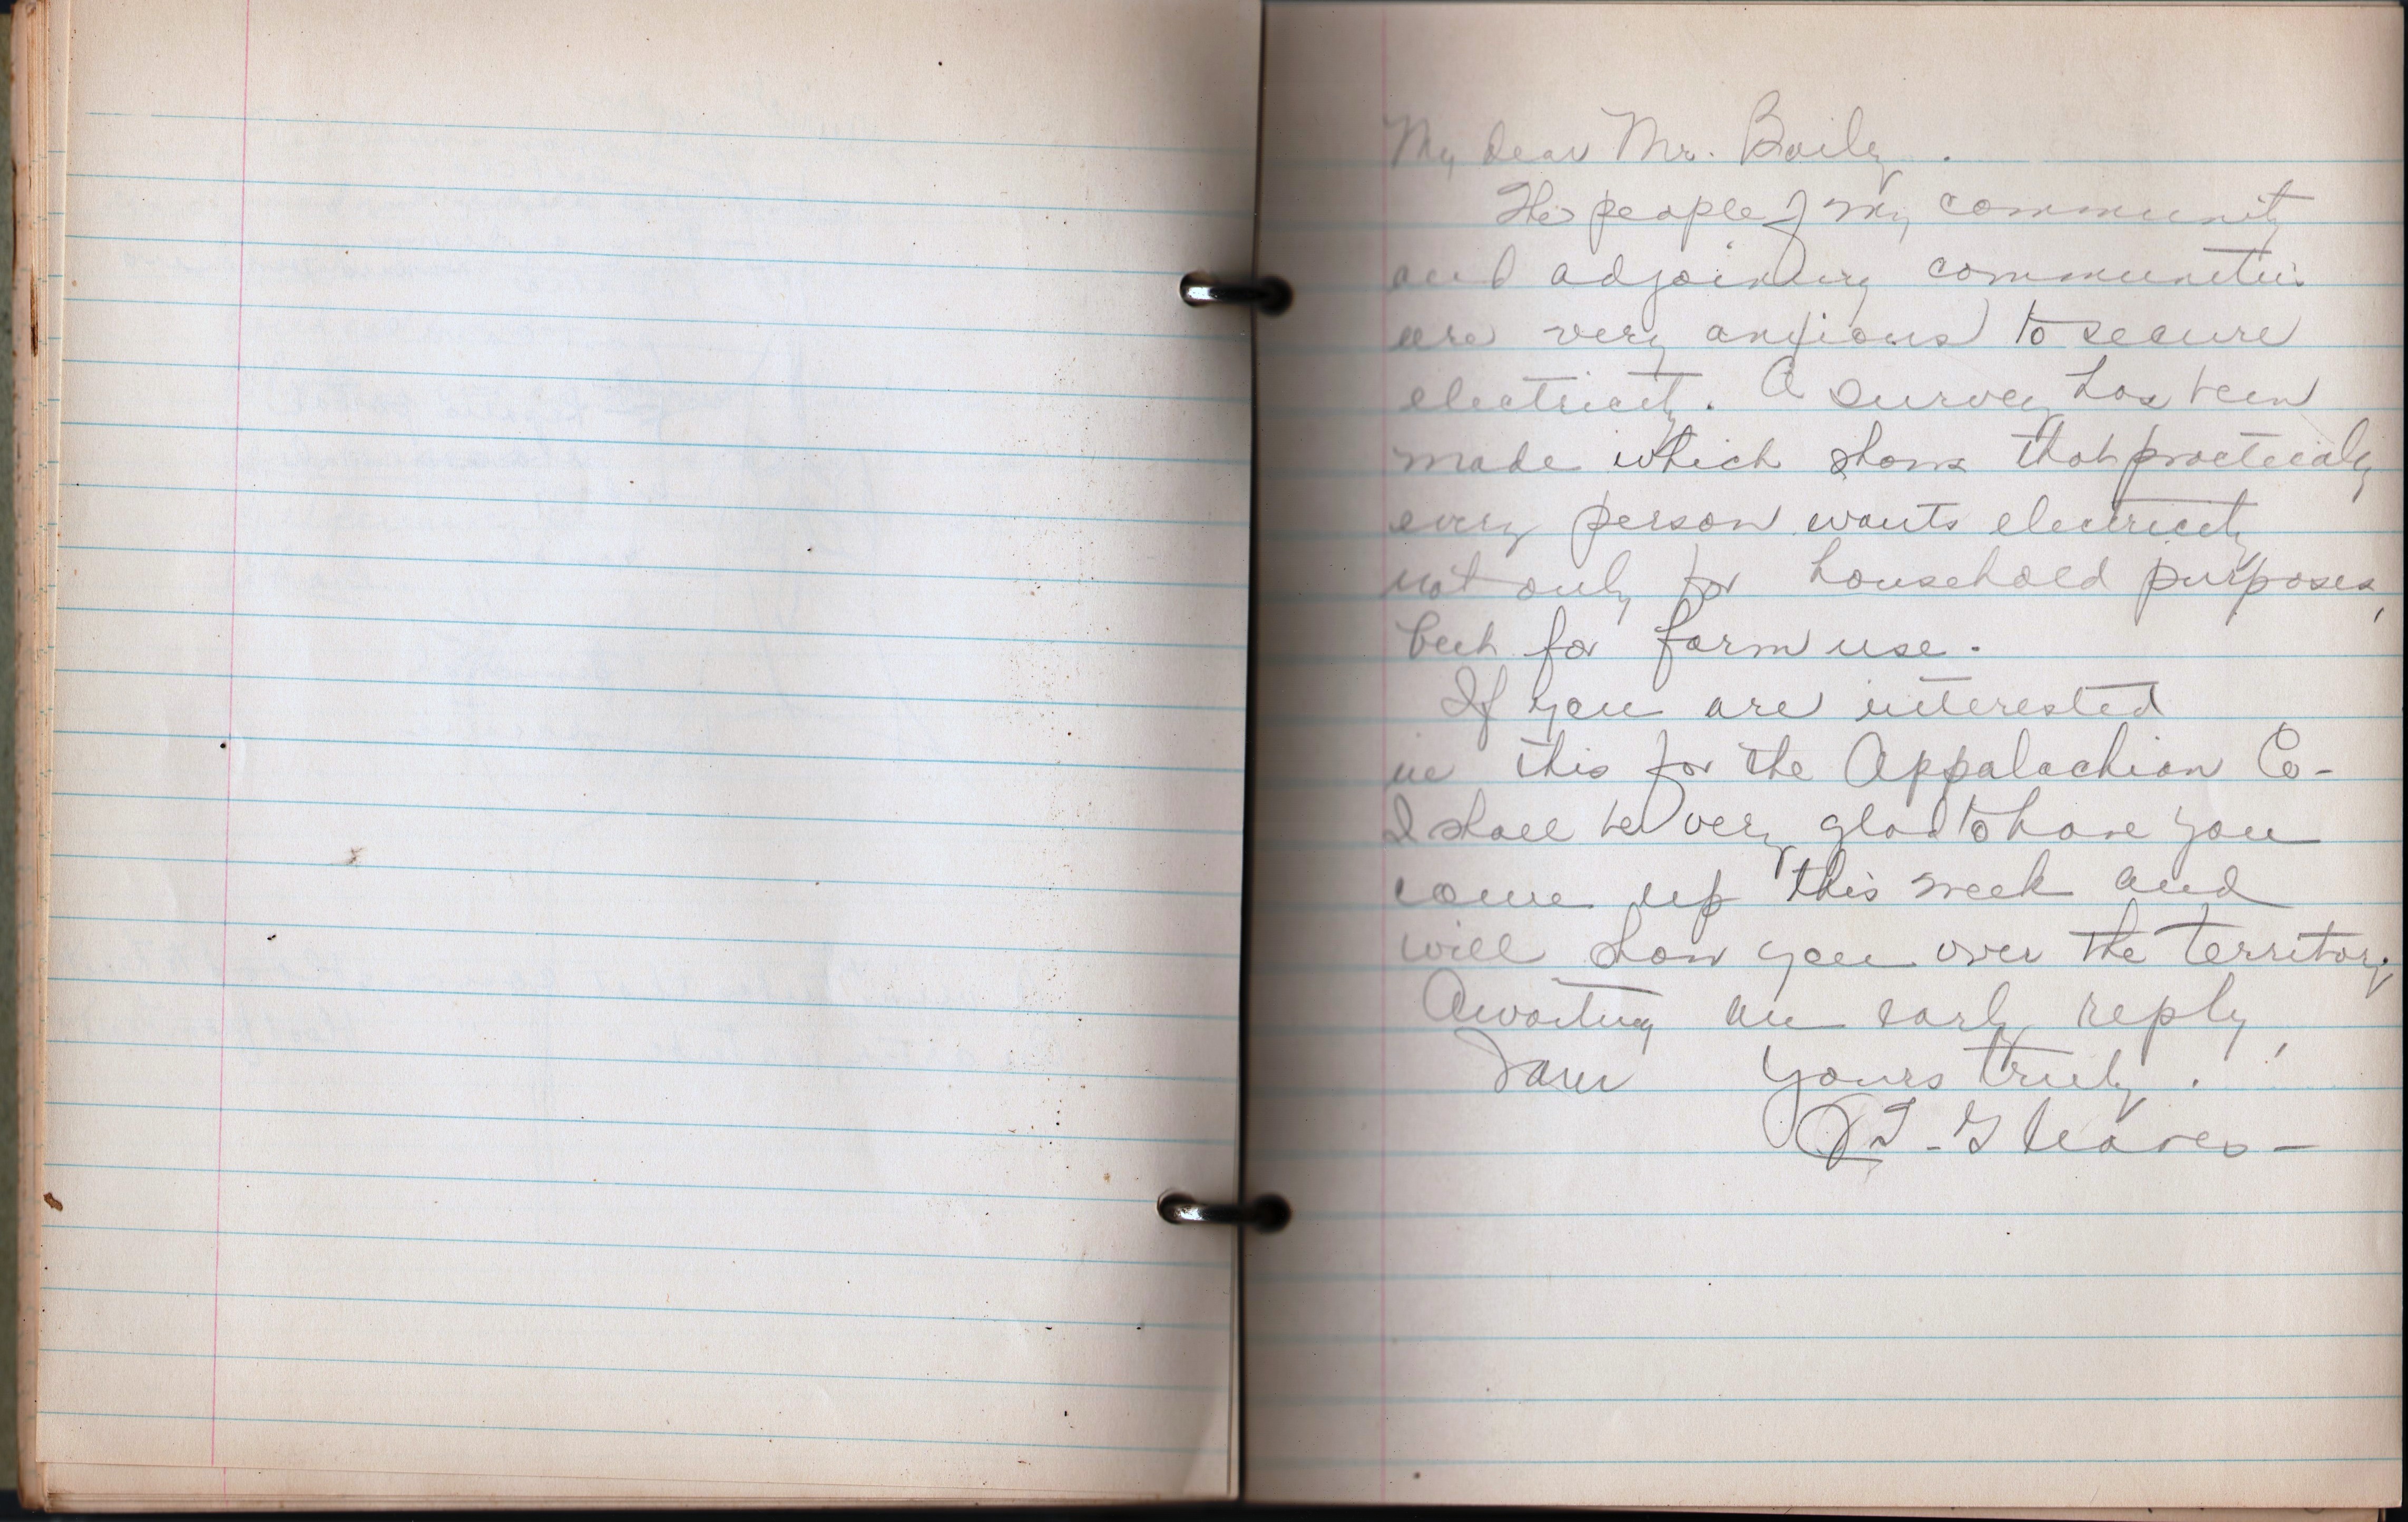 My dear Mr. Baily.
The people of my community
and adjoining communities
are very anxious to secure
electricity. A survey has been
made which shows that practicaly
every person wants electricity
not only for household purposes,
but for farm use.
If you are interested
in this for the Appalachian Co-
I shall be very glad to have you
come up this week and
will show you over the territory.
Awaiting an early reply,
I am Yours truly.
T. Gleaves-